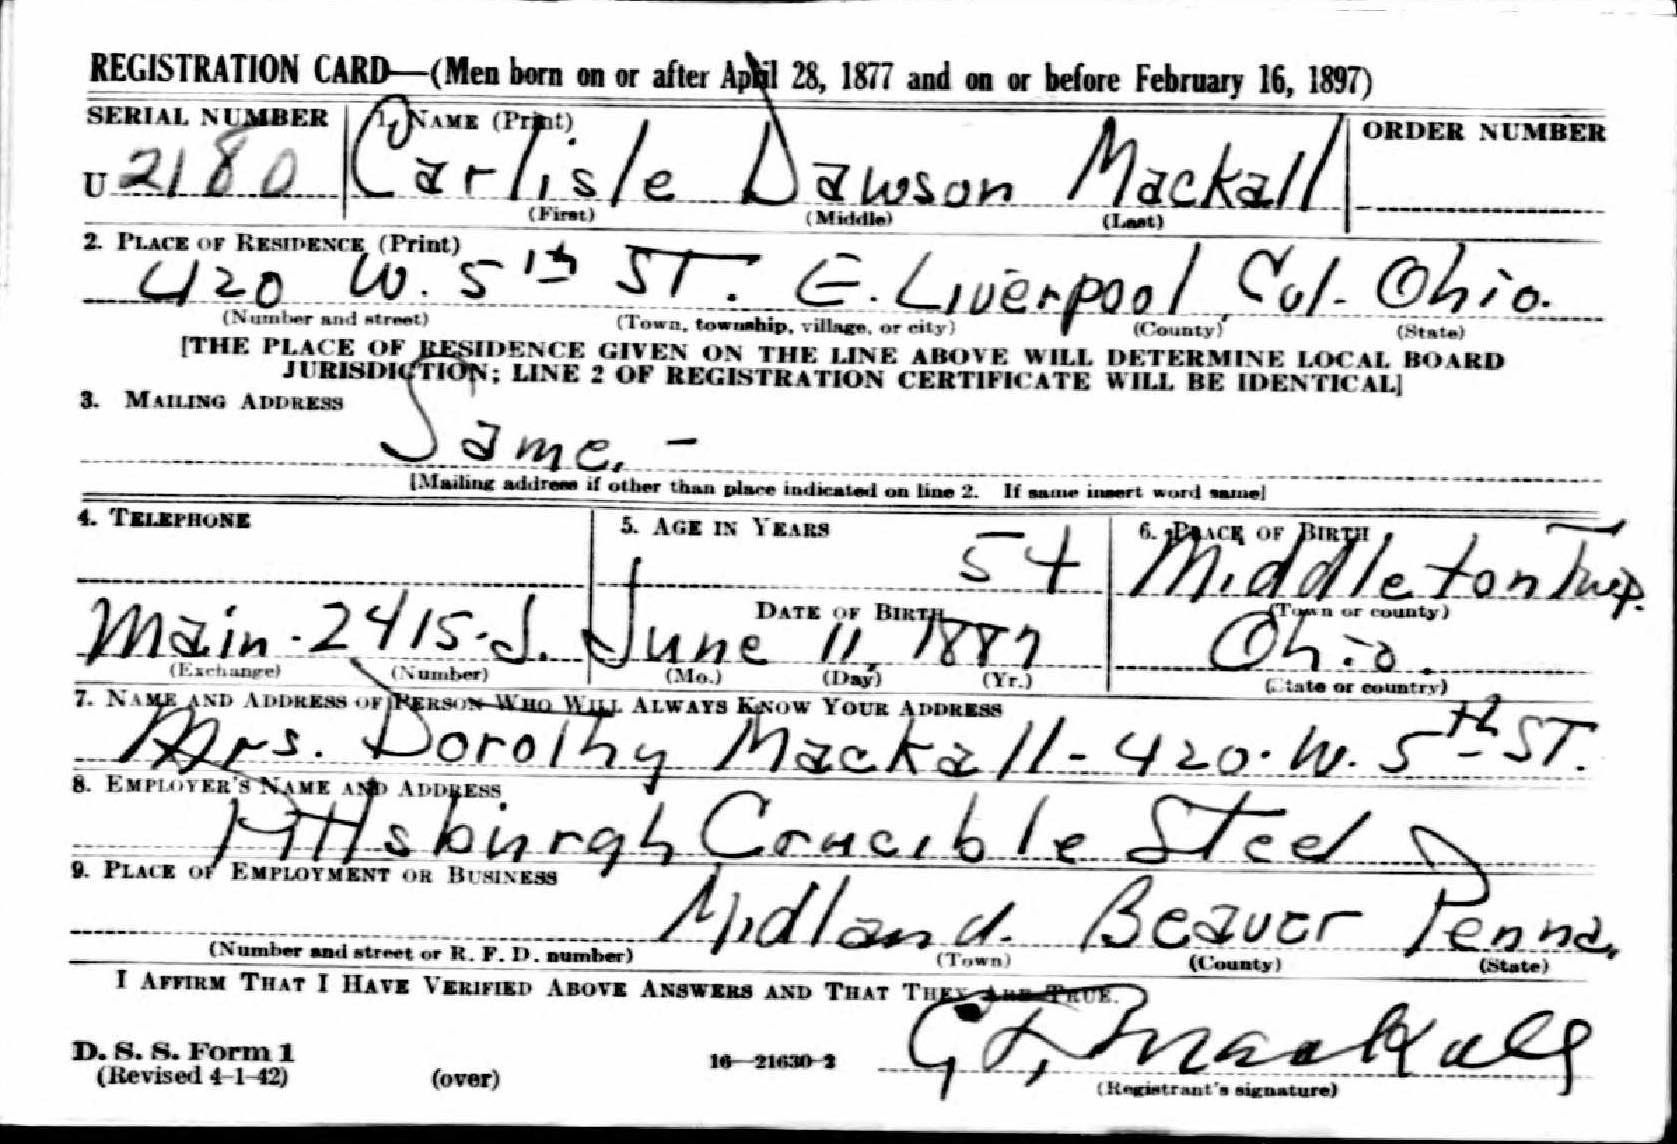 REGISTRATION CARD—(Men born on or after April 28, 1877 and on or before February 16, 1897)
SERIAL NUMBER
1. NAME (Print)
ORDER NUMBER
U 2180 Carlisle Dawson Mackall
(First) (Middle) (Last)
2. PLACE OF RESIDENCE (Print)
420 W. 5th ST. E. Liverpool Col. Ohio.
(Number and street) (Town, township, village, or city) (County) (State)
[THE PLACE OF RESIDENCE GIVEN ON THE LINE ABOVE WILL DETERMINE LOCAL BOARD
JURISDICTION; LINE 2 OF REGISTRATION CERTIFICATE WILL BE IDENTICAL]
3. MAILING ADDRESS
Same. -
[Mailing address if other than place indicated on line 2. If same insert word same]
4. TELEPHONE 5. AGE IN YEARS 6. PLACE OF BIRTH
54 Middleton Twp.
DATE OF BIRTH (Town or county)
Main - 2415-J. June 11, 1887 Ohio.
(Exchange) (Number) (Mo.) (Day) (Yr.) (State or country)
7. NAME AND ADDRESS OF PERSON WHO WILL ALWAYS KNOW YOUR ADDRESS
Mrs. Dorothy Mackall - 420. W. 5th ST.
8. EMPLOYER'S NAME AND ADDRESS
Pittsburgh Crucible Steel
9. PLACE OF EMPLOYMENT OR BUSINESS
Midland. Beaver Penna.
(Number and street or R. F. D. number) (Town) (County) (State)
I AFFIRM THAT I HAVE VERIFIED ABOVE ANSWERS AND THAT THEY ARE TRUE.
D. S. S. Form 1
(Revised 4-1-42) (over) 16—21630-2 Mackall
(Registrant's signature)